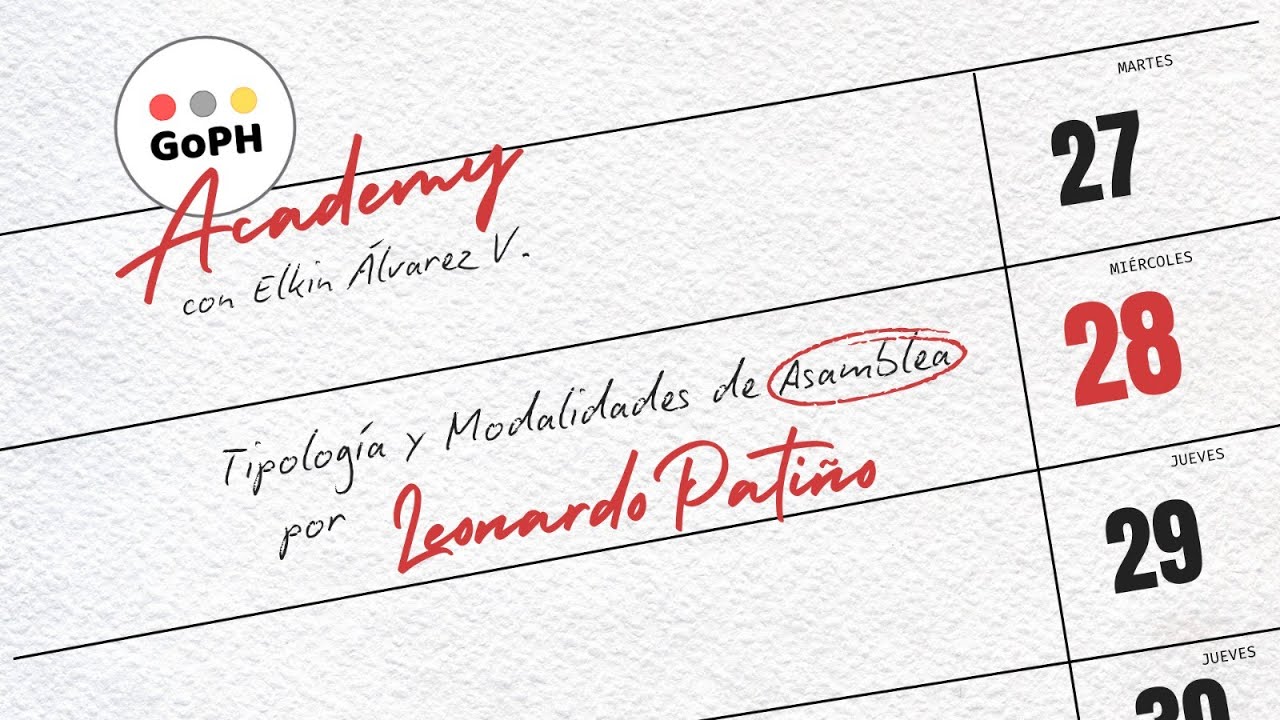 GoPH
Academy
con Elkin Álvarez V.
Tipología y Modalidades de Asamblea
por Leonardo Patiño
MARTES
27
MIÉRCOLES
28
JUEVES
29
JUEVES
30